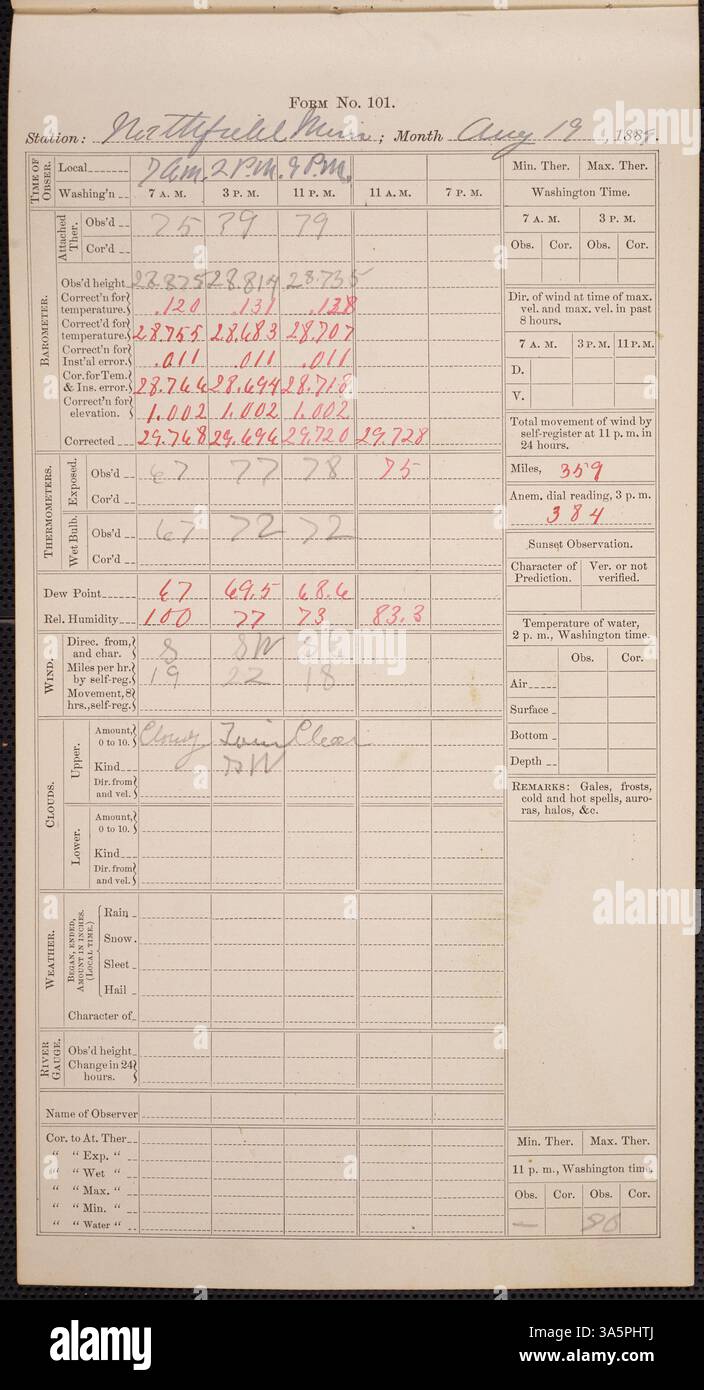 FORM No. 101.
Station: Northfield Minn ; Month Aug 19 , 1889.
TIME OF OBSER.
Local 7 a.m. 2 P.M. 9 P.M.
Washing'n 7 A. M. 3 P. M. 11 P. M. 11 A. M. 7 P. M.
BAROMETER.
Attached Ther.
Obs'd 75 79 79
Cor'd
Obs'd height 28.875 28.814 28.735
Correct'n for temperature. .120 .131 .128
Correct'd for temperature. 28.755 28.683 28.707
Correct'n for Inst'al error. .011 .011 .011
Cor. for Tem. & Ins. error. 28.766 28.694 28.718
Correct'n for elevation. 1.002 1.002 1.002
Corrected 29.768 29.696 29.720 29.728
THERMOMETERS.
Exposed.
Obs'd 67 77 78 75
Cor'd
Wet Bulb.
Obs'd 67 72 72
Cor'd
Dew Point 67 69.5 68.6
Rel. Humidity 100 77 73 83.3
WIND.
Direc. from, and char. S SW
Miles per hr. by self-reg. 19 22 18
Movement, 8 hrs., self-reg.
CLOUDS.
Upper.
Amount, 0 to 10. Cloudy Fair Clear
Kind SW
Dir. from and vel.
Lower.
Amount, 0 to 10.
Kind
Dir. from and vel.
WEATHER.
BEGAN, ENDED, AMOUNT IN INCHES. (LOCAL TIME.)
Rain
Snow
Sleet
Hail
Character of
RIVER GAUGE.
Obs'd height
Change in 24 hours.
Name of Observer
Cor. to At. Ther
" " Exp. "
" " Wet "
" " Max. "
" " Min. "
" " Water "
Min. Ther. Max. Ther.
Washington Time.
7 A. M. 3 P. M.
Obs. Cor. Obs. Cor.
Dir. of wind at time of max. vel. and max. vel. in past 8 hours.
7 A. M. 3 P. M. 11 P. M.
D.
V.
Total movement of wind by self-register at 11 p. m. in 24 hours.
Miles, 359
Anem. dial reading, 3 p. m.
384
Sunset Observation.
Character of Prediction. Ver. or not verified.
Temperature of water, 2 p. m., Washington time.
Obs. Cor.
Air
Surface
Bottom
Depth
REMARKS: Gales, frosts, cold and hot spells, auroras, halos, &c.
Min. Ther. Max. Ther.
11 p. m., Washington time.
Obs. Cor. Obs. Cor.
— 86
alamy
alamy
Image ID: 3A5PHTJ
www.alamy.com